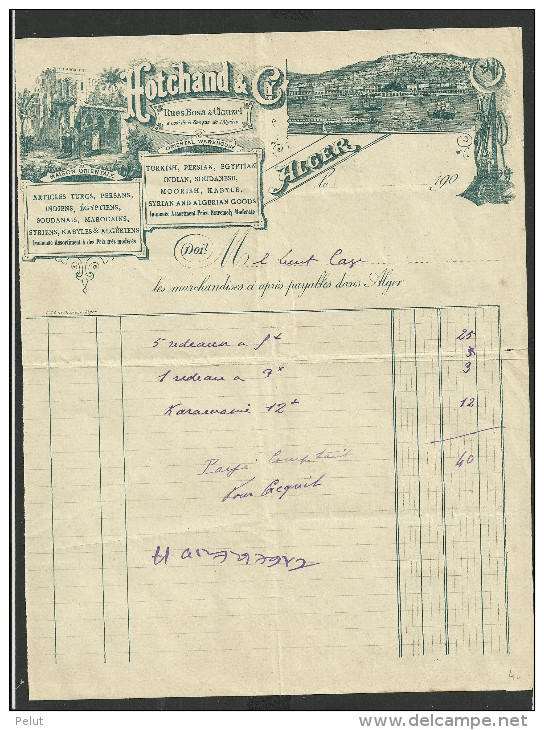 Hotchand & Co
Rues Bosa & Clauzel
MAISON ORIENTALE
ARTICLES TURCS, PERSANS,
INDIENS, ÉGYPTIENS,
SOUDANAIS, MAROCAINS,
SYRIENS, KABYLES & ALGÉRIENS
Immense Assortiment à des Prix très modérés
ORIENTAL WAREHOUSE
TURKISH, PERSIAN, EGYPTIAN
INDIAN, SOUDANESH,
MOORISH, KABYLE,
SYRIAN AND ALGERIAN GOODS
Immense Assortment Price Extremely Moderate
ALGER
le 190
Doit M l lieut Caze
les marchandises ci après payables dans Alger
5 redeaux a 25
1 redeau a 3
12 12
40
Payé Comptant
Pour Acquit
Pelut
www.delcampe.net